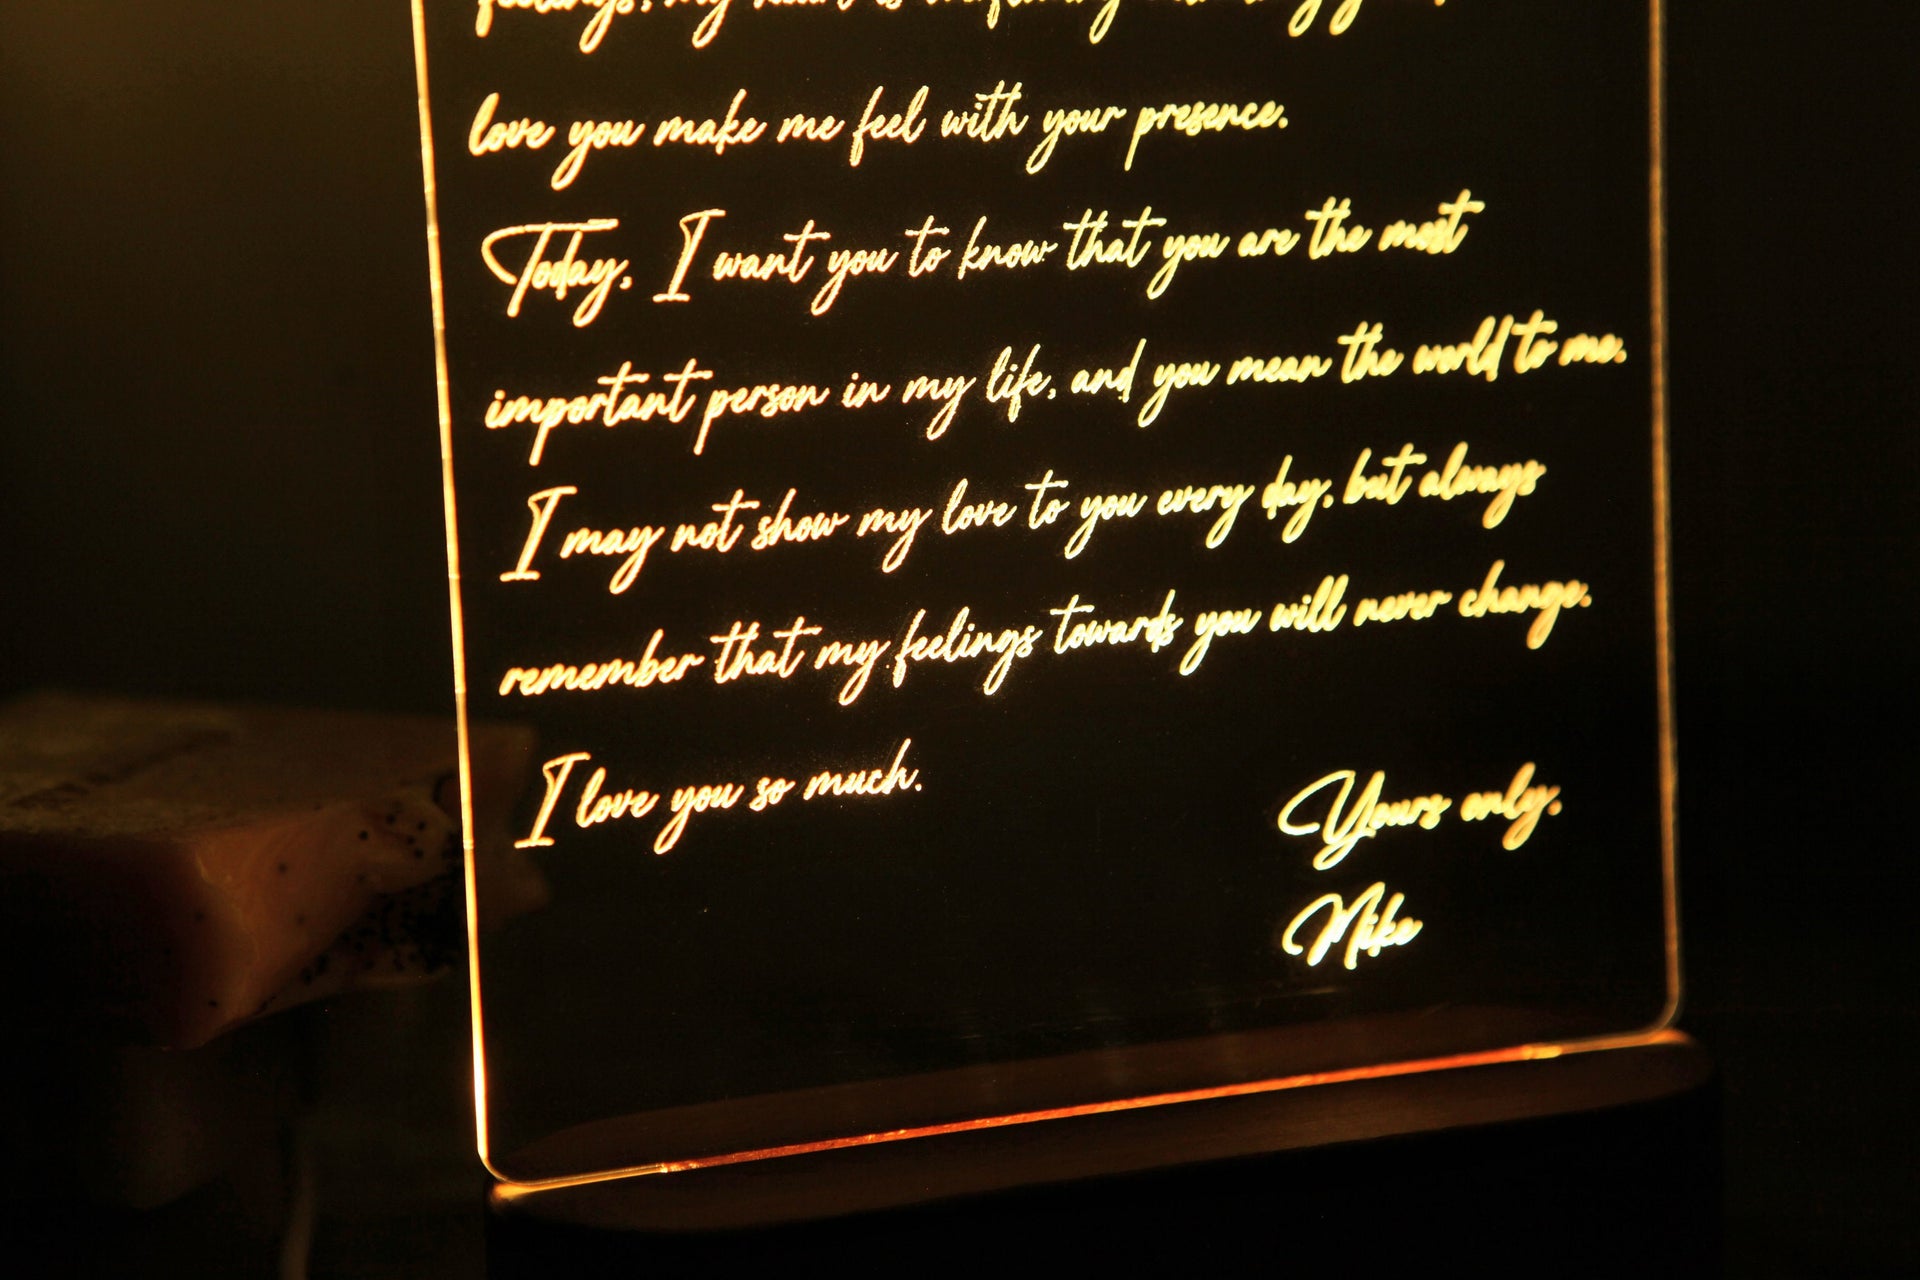 feelings, my heart is
love you make me feel with your presence.
Today, I want you to know that you are the most
important person in my life, and you mean the world to me.
I may not show my love to you every day, but always
remember that my feelings towards you will never change.
I love you so much.
Yours only,
Mike